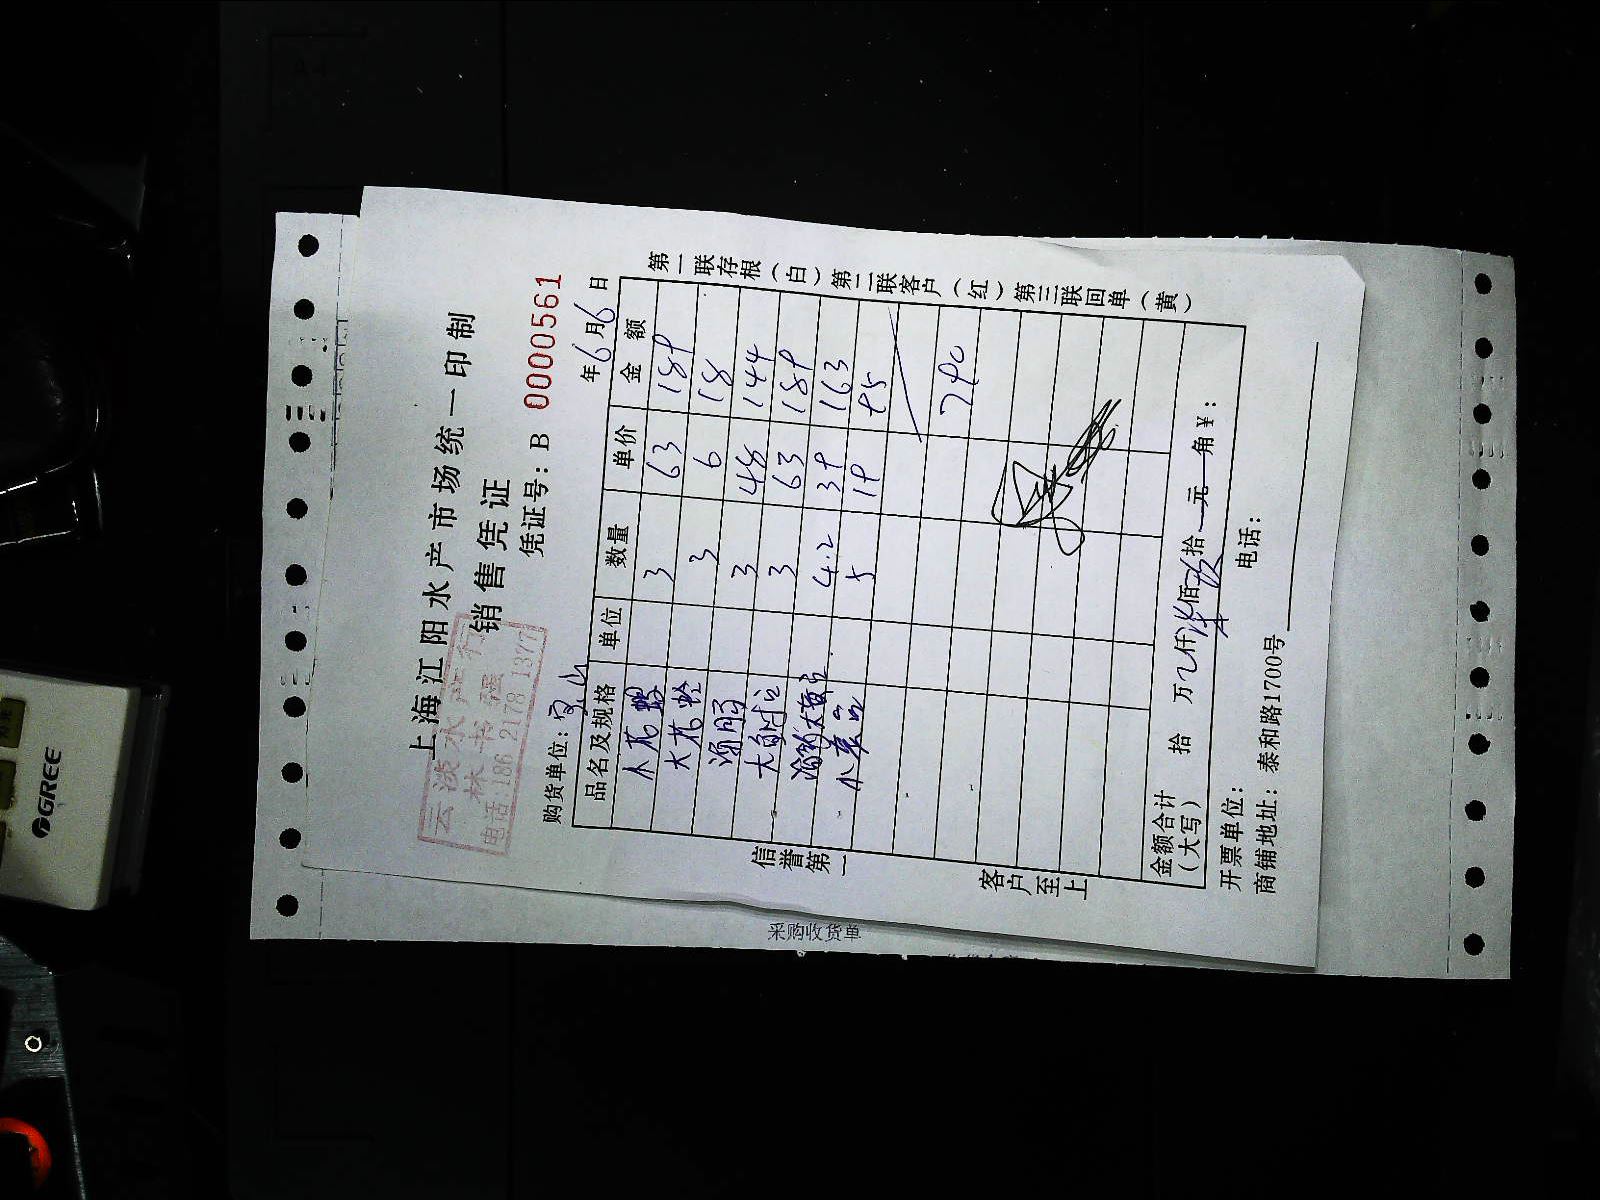 上海江阳水产市场统一印制
销售凭证
云淡水产行
林书强
电话:186 2178 1377
凭证号: B 0000561
购货单位:
年6月6日
品名及规格 单位 数量 单价 金额
3 63 189
大花蛤 3 6 18
3 48 144
3 63 189
4.2 39 163
5 19 95
790
金额合计
(大写) 拾 万 仟 佰 拾 元 角¥:
开票单位: 电话:
商铺地址: 泰和路1700号
信誉第一
客户至上
第一联存根(白)第二联客户(红)第三联回单(黄)
采购收货单
GREE